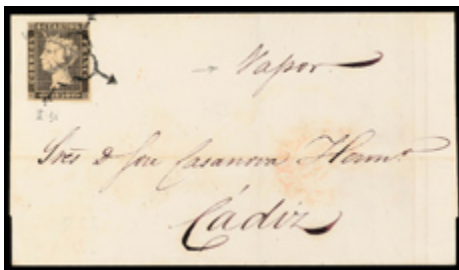 Vapor
Sres D Jou Casanova Herms
Cádiz